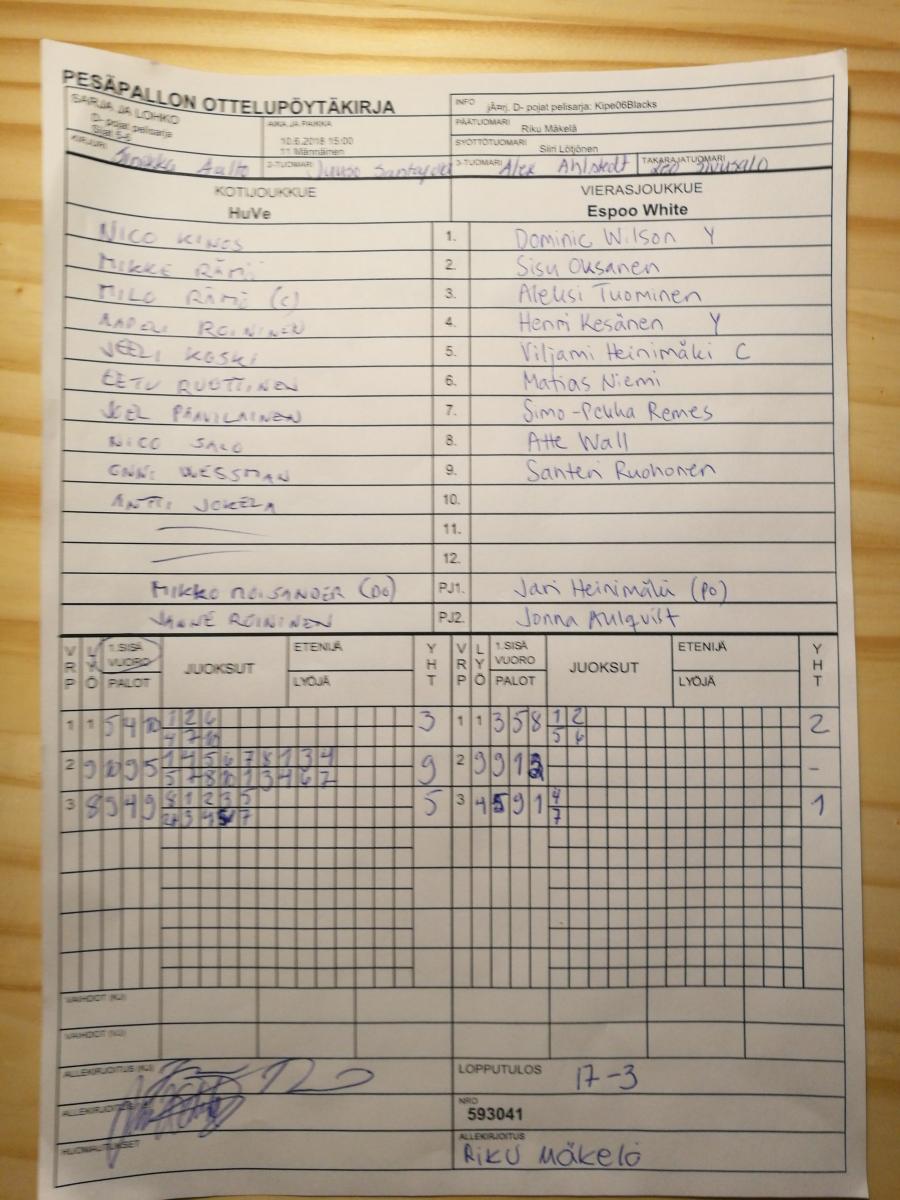 PESÄPALLON OTTELUPÖYTÄKIRJA
INFO jÄ¤rj. D- pojat pelisarja: Kipe06Blacks
SARJA JA LOHKO
D- pojat pelisarja
AIKA JA PAIKKA
10.6.2018 15:00
11 Männäinen
PÄÄTUOMARI Riku Mäkelä
SYÖTTÖTUOMARI Siiri Lötjönen
KIRJURI Aalto 2-TUOMARI Juuso 3-TUOMARI Alex Ahlstedt TAKARAJATUOMARI Leo Sivusalo
KOTIJOUKKUE VIERASJOUKKUE
HuVe Espoo White
NICO KINOS 1. Dominic Wilson Y
MIKKE RÄMÖ 2. Sisu Oksanen
MILO RÄMÖ (C) 3. Aleksi Tuominen
ROININEN 4. Henri Kesänen Y
VEELI KOSKI 5. Viljami Heinimäki C
EETU RUOTTINEN 6. Matias Niemi
JOEL PAAVILAINEN 7. Simo-Pekka Remes
NICO SALO 8. Atte Wall
ONNI WESSMAN 9. Santeri Ruohonen
ANTTI JOKELA 10.
11.
12.
MIKKO MOISANDER PJ1. Jari Heinimäki (PO)
JANNE ROININEN PJ2. Jonna Ahlqvist
VRP LYÖ 1.SISÄ VUORO PALOT JUOKSUT ETENIJÄ LYÖJÄ YHT VRP LYÖ 1.SISÄ VUORO PALOT JUOKSUT ETENIJÄ LYÖJÄ YHT
1 1 5 4 10 1 2 6 3 1 1 3 5 8 1 2 2
4 7 10 5 6
2 9 10 9 5 1 4 5 6 7 8 1 3 4 9 2 9 9 1 -
5 7 8 10 1 3 4 6 7
3 8 9 4 9 8 1 2 3 5 5 3 4 5 9 1 4 1
3 4 7 7
VAIHDOT (KJ)
VAIHDOT (VJ)
ALLEKIRJOITUS (KJ) LOPPUTULOS 17-3
ALLEKIRJOITUS NRO
593041
HUOMAUTUKSET ALLEKIRJOITUS
Riku Mäkelä